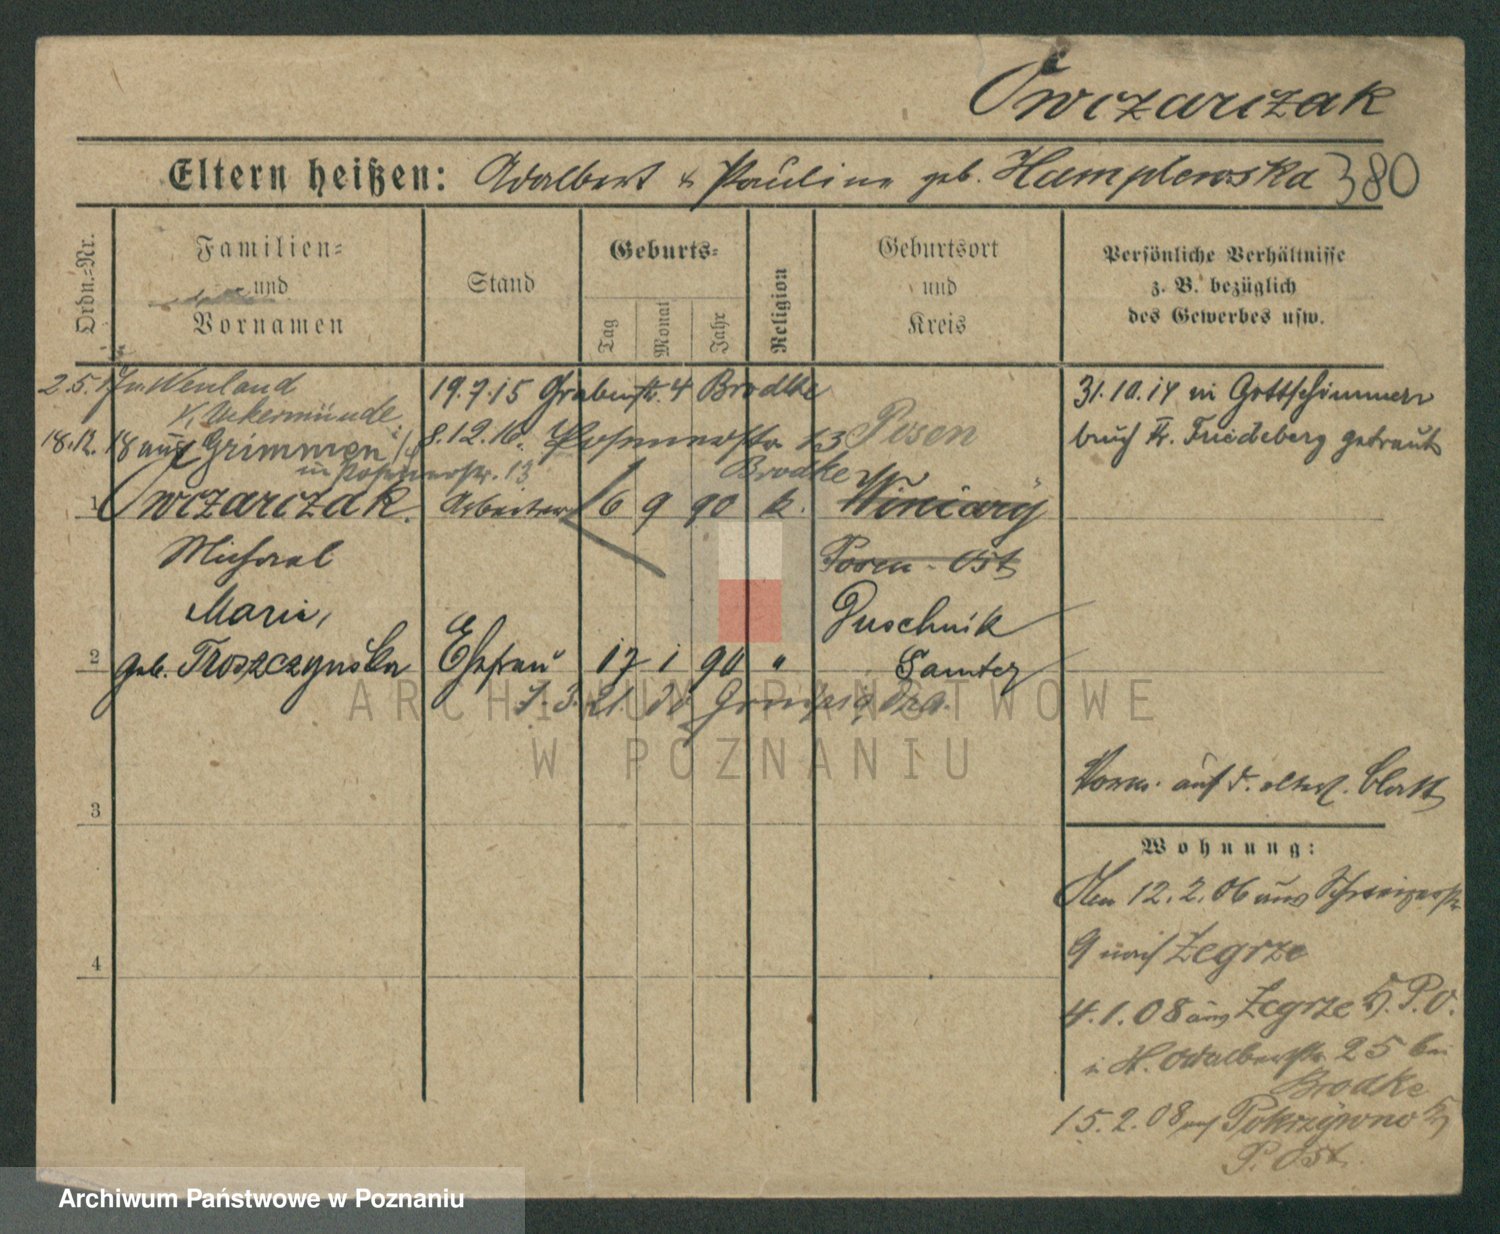 Owczarczak
Eltern heißen: Adalbert & Pauline geb. Hamplewska 380
Ordn.=Nr.
Familien=
und
Vornamen
Stand
Geburts=
Tag
Monat
Jahr
Religion
Geburtsort
und
Kreis
Persönliche Verhältnisse
z. B. bezüglich
des Gewerbes usw.
2.5.17 n. Wenland
K. Uekermünde
19.7.15 Grabenstr. 4 Brodke
18.12.18 aus Grimmen
in Posenerstr. 13
8.12.16. Posenerstr. 13 Posen
Brodke
31.10.14 in Gottschimmer
bruch Kr. Friedeberg getraut
1 Owczarczak. Arbeiter 6 9 90 k. Winiary
Michael
Posen-Ost
Marie,
Puschnik
2 geb. Troszczynska Ehefrau 17 1 90 "
Samter
1.3.21.
ARCHIWUM PAŃSTWOWE
W POZNANIU
3
Verm. auf d. elterl. Blatt
Wohnung:
Den 12.2.06 aus
9 nach Zegrze
4
4.1.08 aus Zegrze Kr. P.O.
i. H. Adalbertstr. 25 bei
Brodke
15.2.08 nach Pokrzywno Kr.
P. Ost.
Archiwum Państwowe w Poznaniu